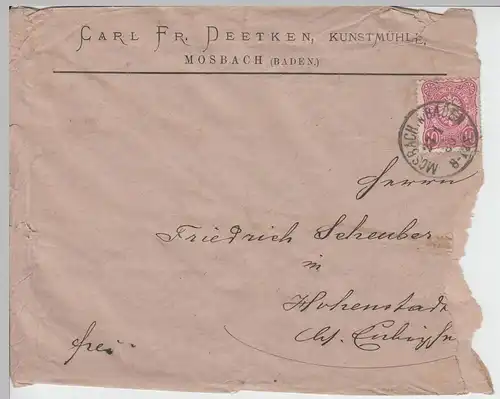 CARL FR. DEETKEN, KUNSTMÜHLE,
MOSBACH (BADEN.)
MOSBACH i/BADEN
Herrn
Friedrich Scheuber
in
Hohenstadt
frei